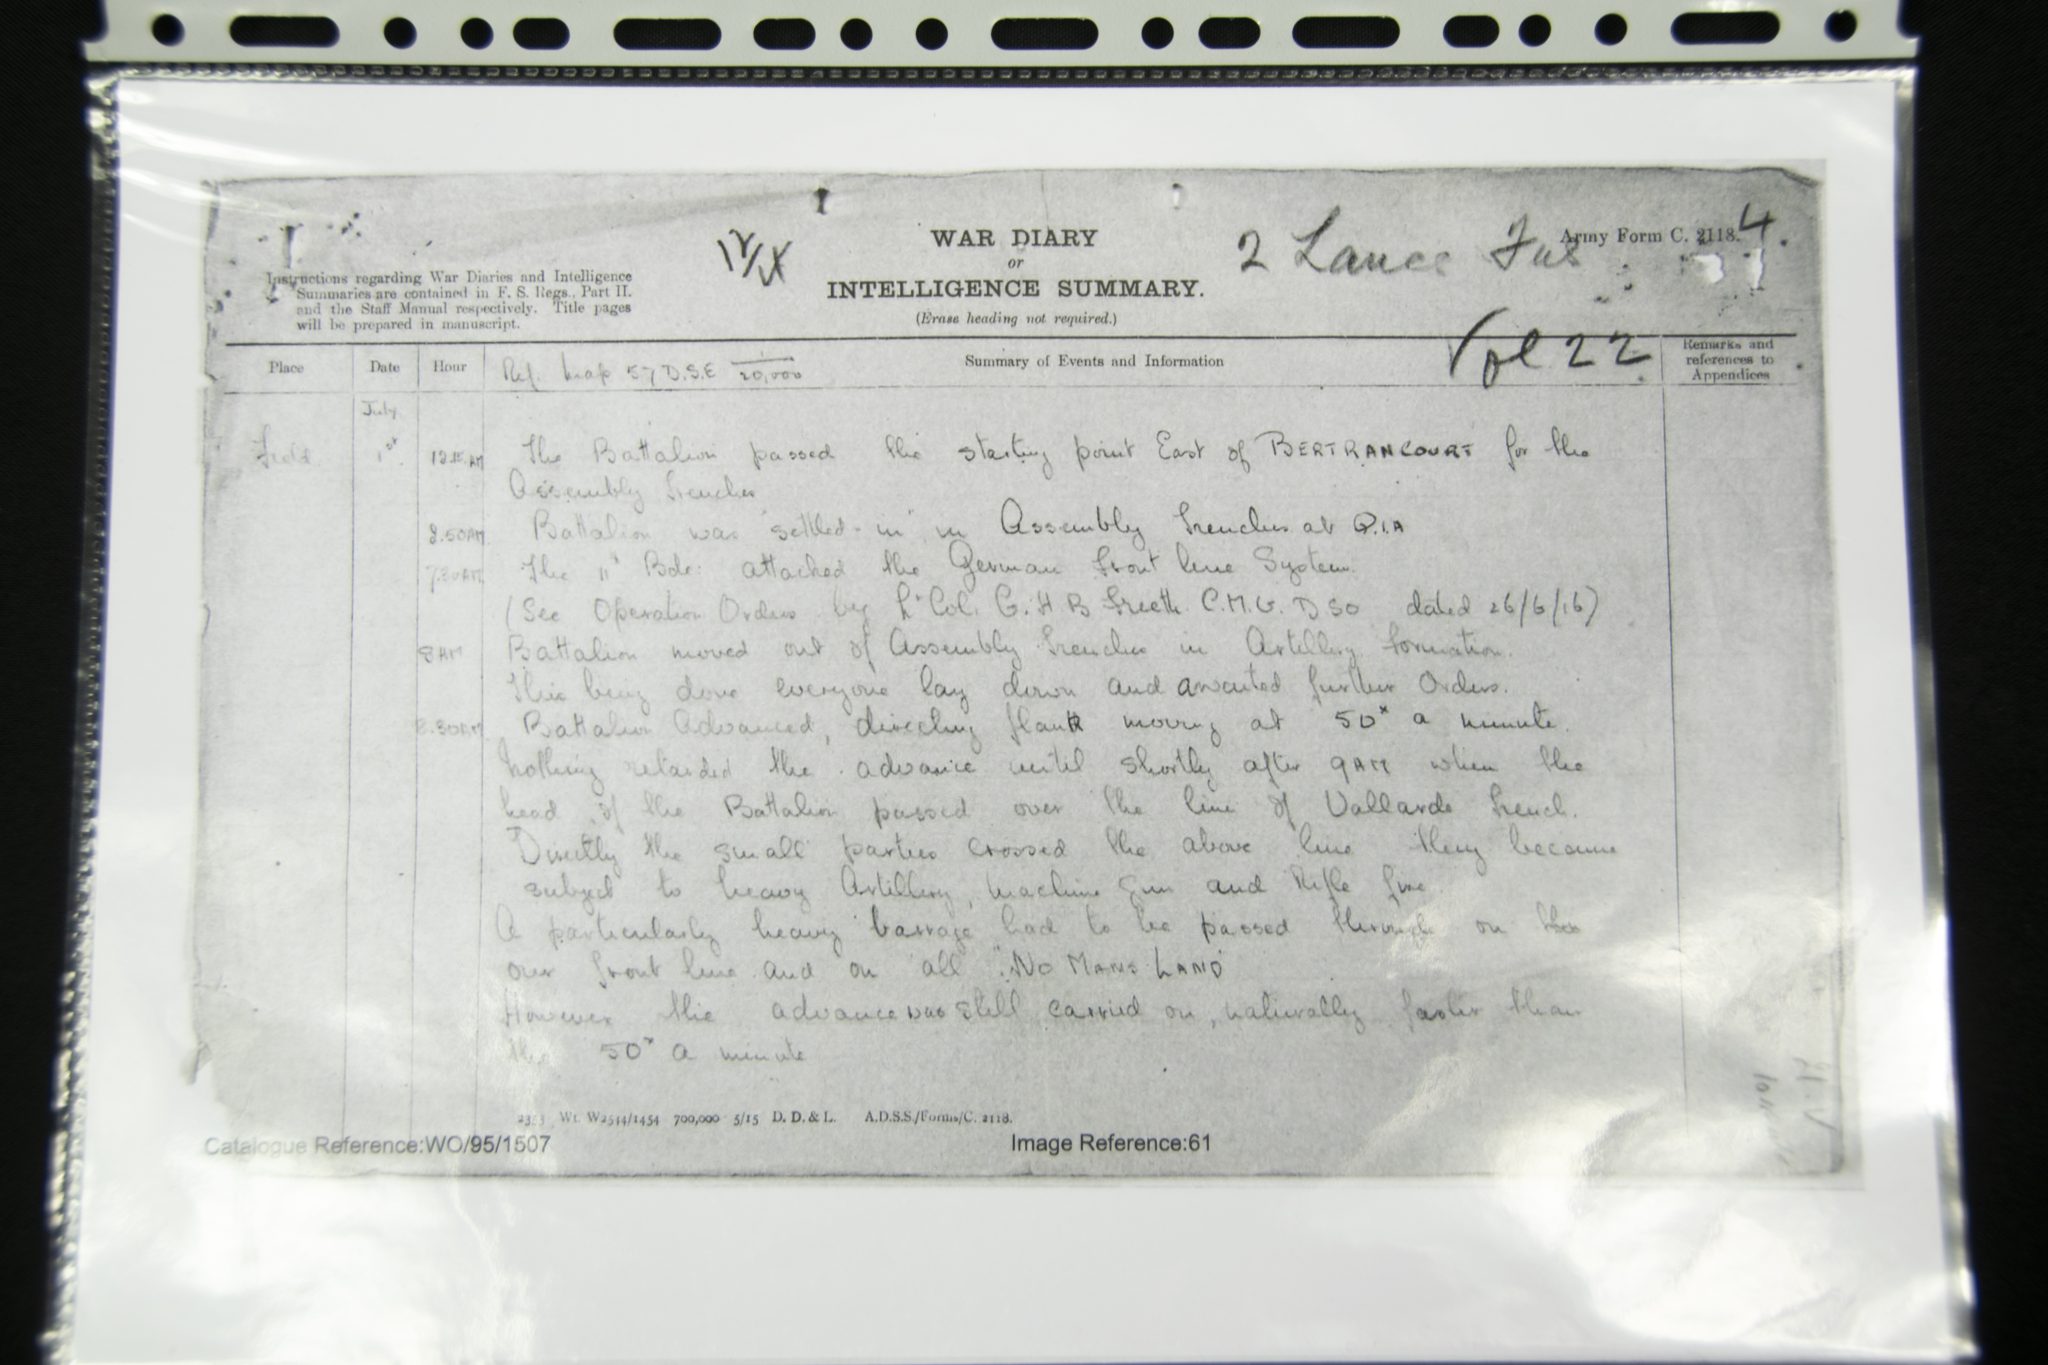 WAR DIARY
or
INTELLIGENCE SUMMARY.
(Erase heading not required.)
2 Lance Fus
Army Form C. 2118.
4.
Instructions regarding War Diaries and Intelligence
Summaries are contained in F. S. Regs., Part II.
and the Staff Manual respectively. Title pages
will be prepared in manuscript.
Vol 22
Place Date Hour Summary of Events and Information Remarks and
references to
Appendices
Ref. Map 57 D.S.E 1/20,000
July
Field 1st AM The Battalion passed the starting point East of BERTRANCOURT for the
Assembly Trenches
Battalion was "settled-in" in Assembly Trenches at Q.1.A
7.30AM The 11th Bde: attacked the German Front line System.
(See Operation Orders by Lt Col. G. H B Freeth C.M.G. DSO dated 26/6/16)
8AM Battalion moved out of Assembly Trenches in Artillery Formation.
This being done everyone lay down and awaited further Orders.
8.30AM Battalion Advanced, directing flank moving at 50x a minute.
Nothing retarded the advance until shortly after 9AM when the
head of the Battalion passed over the line of Vallarde Trench.
Directly the small parties crossed the above line they became
subject to heavy Artillery, machine gun and Rifle fire.
A particularly heavy barrage had to be passed through on
our front line and on all "NO MANS LAND"
However the advance was still carried on, naturally faster than
the 50x a minute
Wt. W2514/1454 700,000 5/15 D. D. & L. A.D.S.S./Forms/C. 2118.
Catalogue Reference:WO/95/1507 Image Reference:61